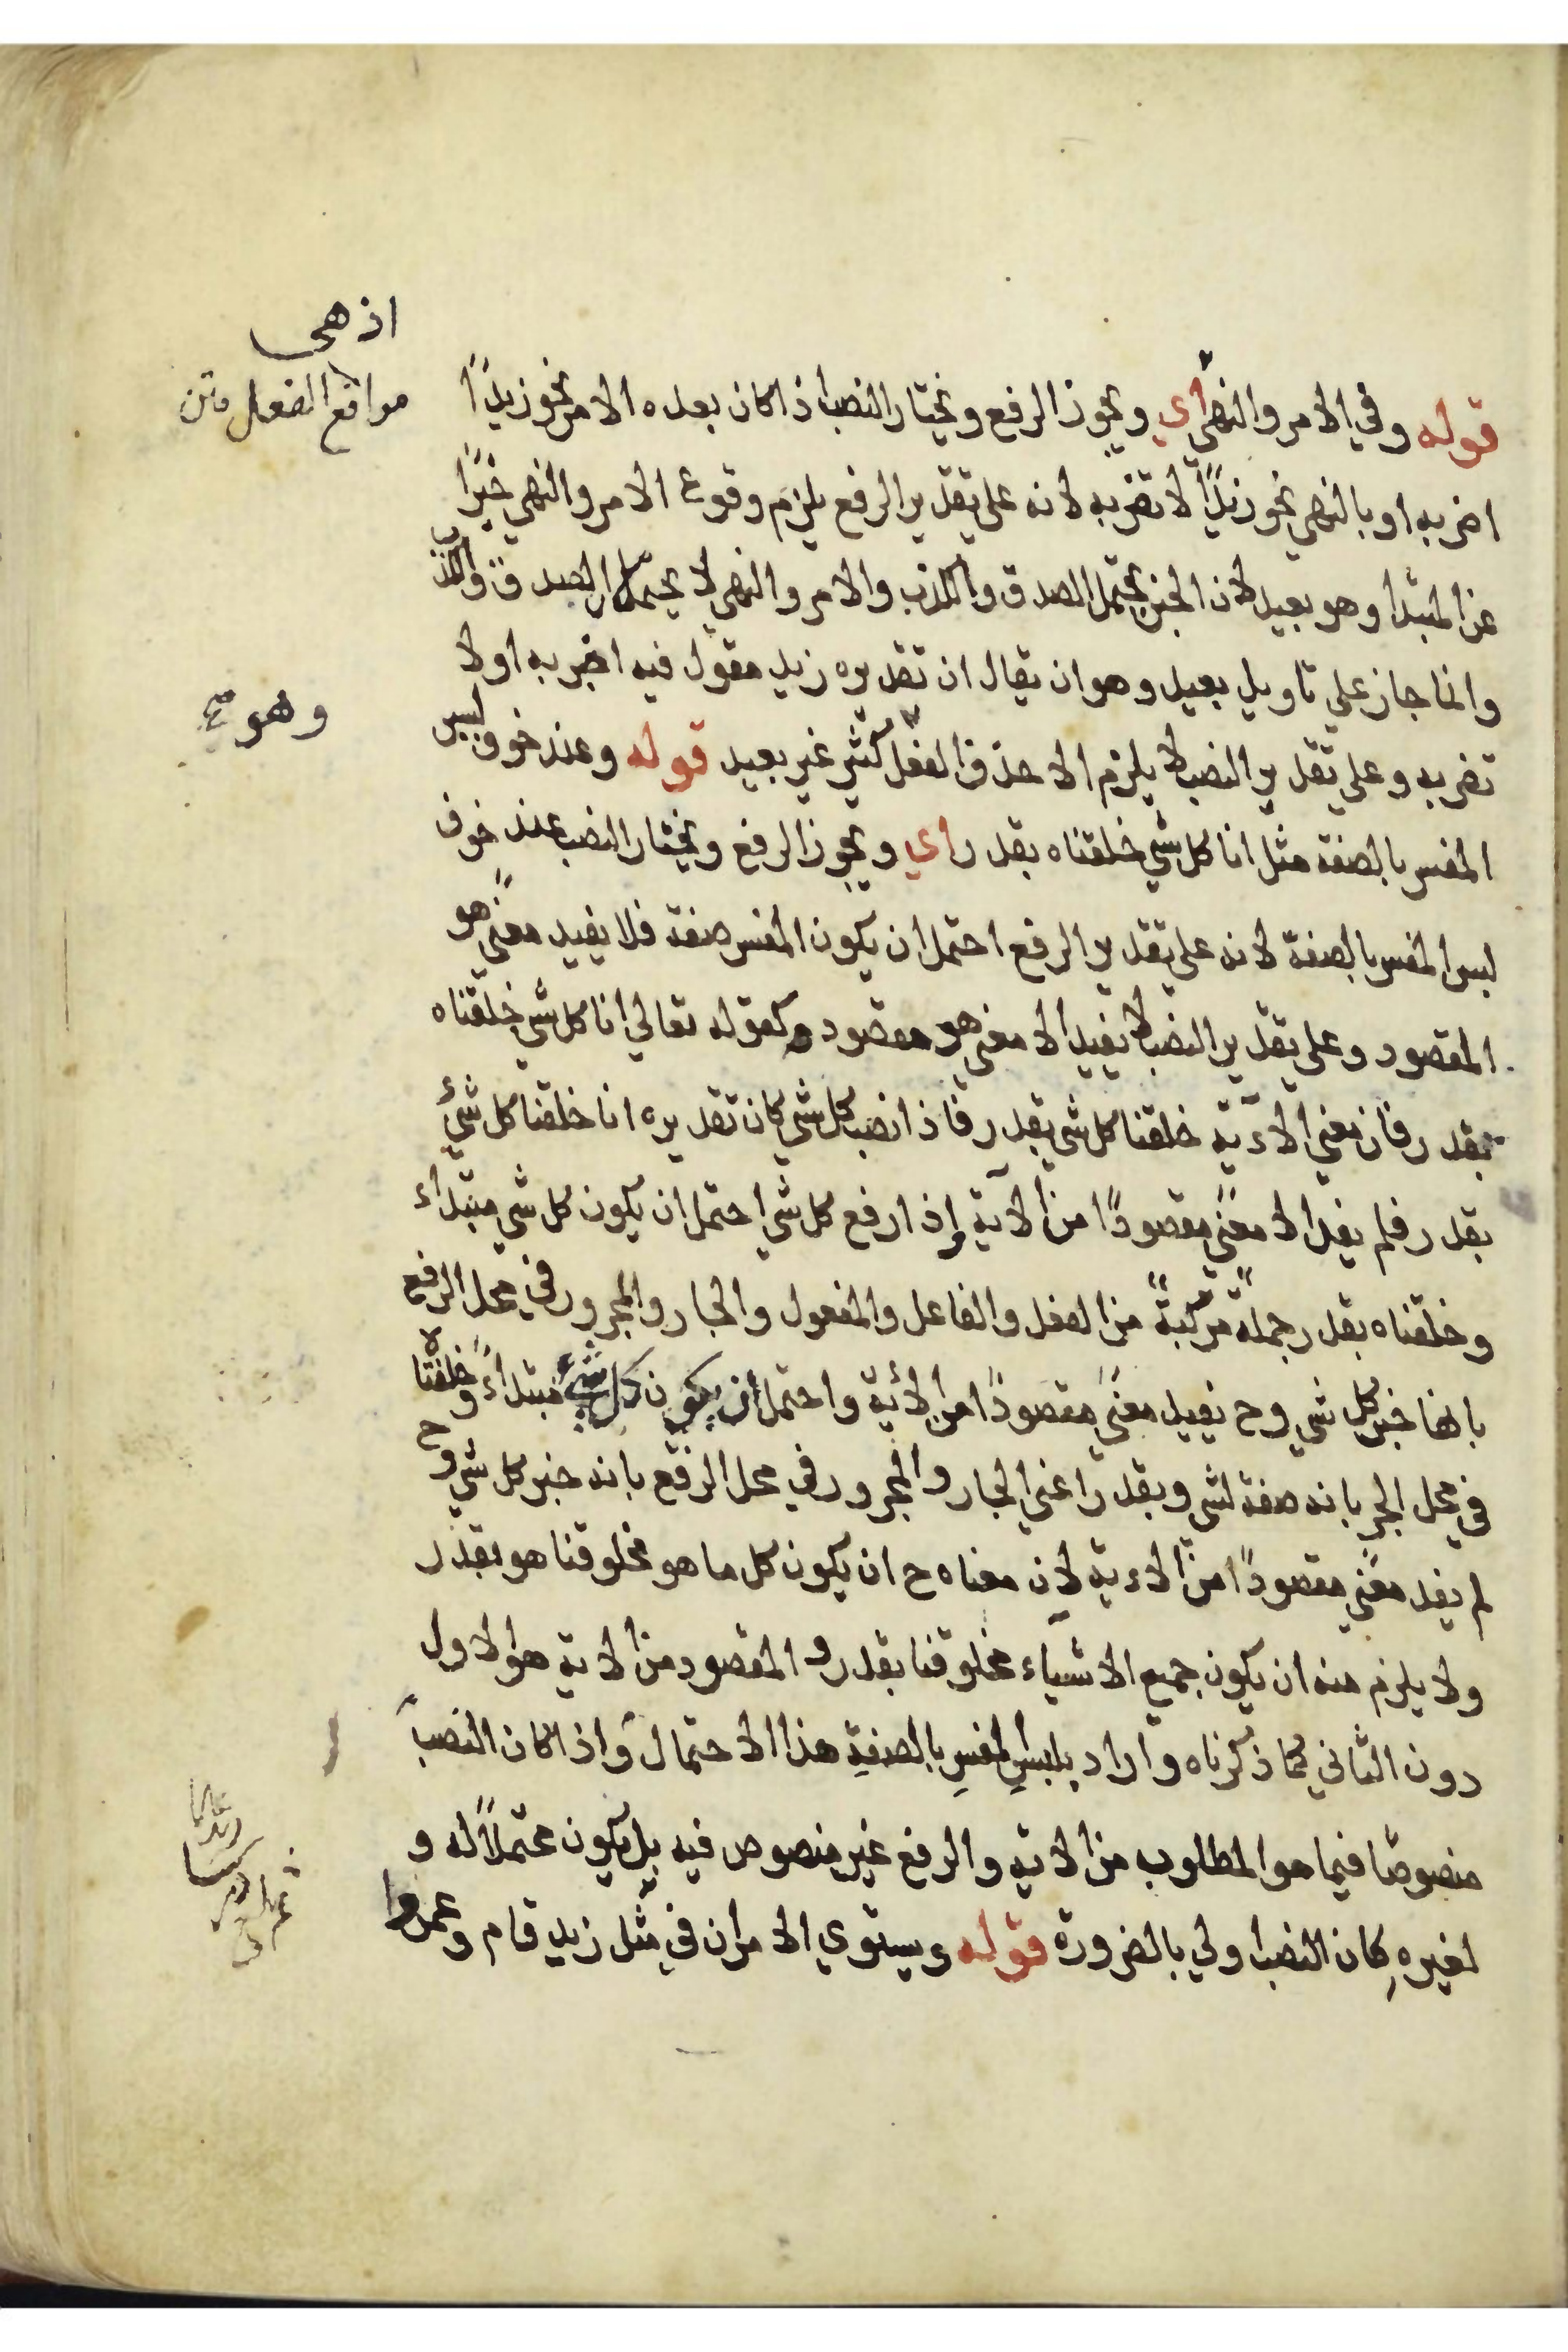 اذ هى
مواقع الفعل متن
قوله وفي الامر والنهي أي ويجوز الرفع ويختار النصب اذا كان بعده الامر نحو زيدًا
اضربه او بالنهي نحو زيدًا لا تضربه لانه على تقدير الرفع يلزم وقوع الامر والنهي خبرًا
عن المبتدأ وهو بعيد لان الخبر يحتمل الصدق والكذب والامر والنهي لا يحتمل الصدق والكذب
وانما جاز علي تاويل بعيد وهو ان يقال ان تقديره زيد مقول فيه اضربه اولا
تضربه وعلى تقدير النصب لا يلزم الا حذف الفعل كثير غير بعيد قوله وعند خوف لبس
وهو صح
المفسر بالصفة مثل انا كل شي خلقناه بقدر أي ويجوز الرفع ويختار النصب عند خوف
لبس المفسر بالصفة لانه على تقدير الرفع احتمل ان يكون المفسر صفة فلا يفيد معنًى هو
المقصود وعلى تقدير النصب لا يفيد الا معنى هو مقصود وكقوله تعالي انا كل شي خلقناه
بقدر فان معنى الاية خلقنا كل شي بقدر فاذا نصب كل شي كان تقديره انا خلقنا كل شئ
بقدر فلم يفد الا معنًى مقصودًا من الآية وإذا رفع كل شي احتمل ان يكون كل شي مبتداء
وخلقناه بقدر جملةً مركبةً من الفعل والفاعل والمفعول والجار والمجرور في محل الرفع
بانها خبر كل شي وح يفيد معنًى مقصودًا من الاية واحتمل أن يكون كل شئ مبتداءً وخلقناه
في محل الجر بانه صفة لشي وبقدر اعني الجار والمجرور في محل الرفع بانه خبر كل شي وح
لم يفد معنًى مقصودًا من الاية لان معناه ح ان يكون كل ما هو مخلوقنا هو بقدر
ولا يلزم منه ان يكون جميع الاشياء مخلوقنا بقدر والمقصود من الاية هو الاول
دون الثاني كما ذكرناه واراد بلبس المفسر بالصفة هذا الاحتمال واذا كان النصب
منصوصًا فيما هو المطلوب من الاية والرفع غير منصوص فيه بل يكون محتملاً له و
لغيره كان النصب اولي بالضرورة قوله ويستوي الامران في مثل زيد قام وعمروا